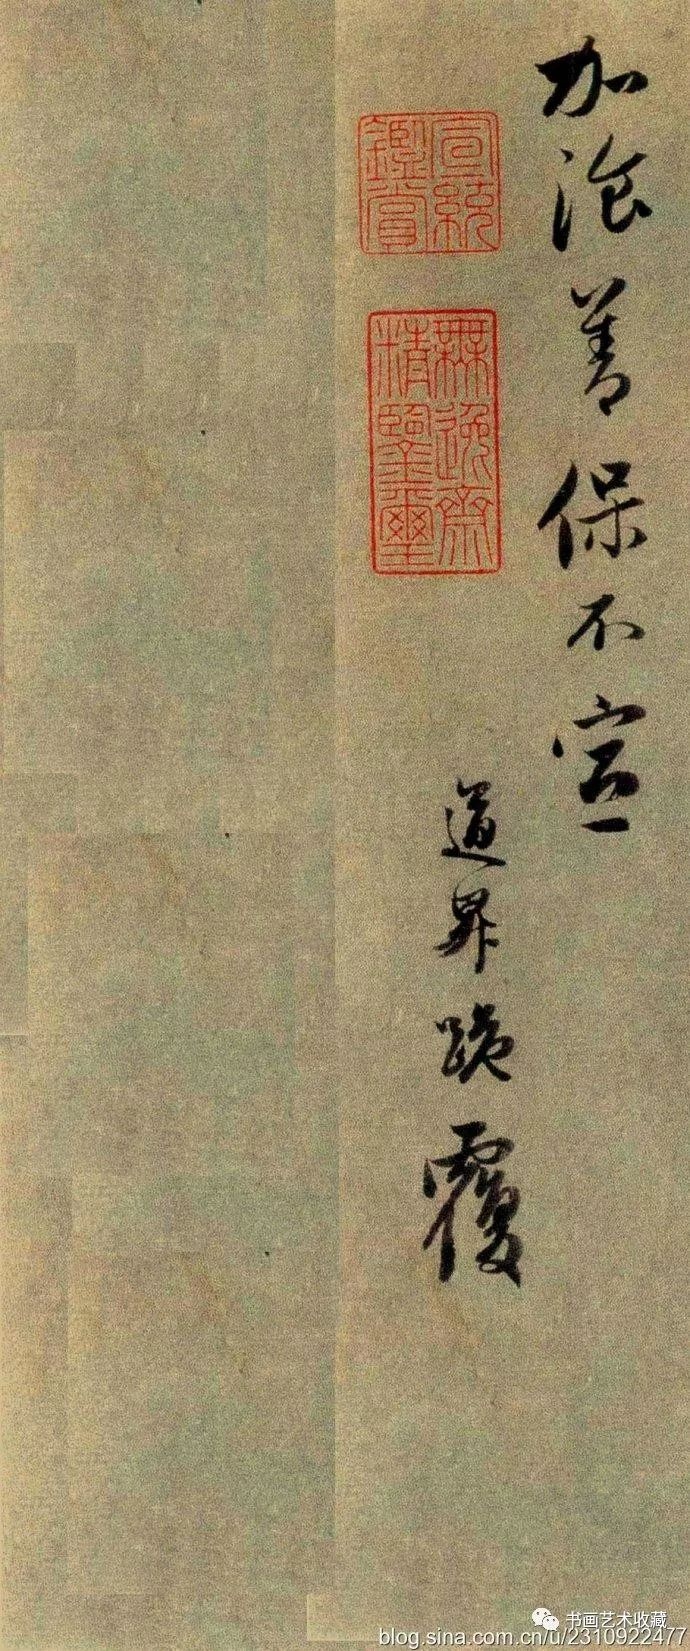 加湌善保不宣
道昇跪覆
宣統
鑑賞
無逸齋
精鑒璽
书画艺术收藏
blog.sina.com.cn/u/2310922477